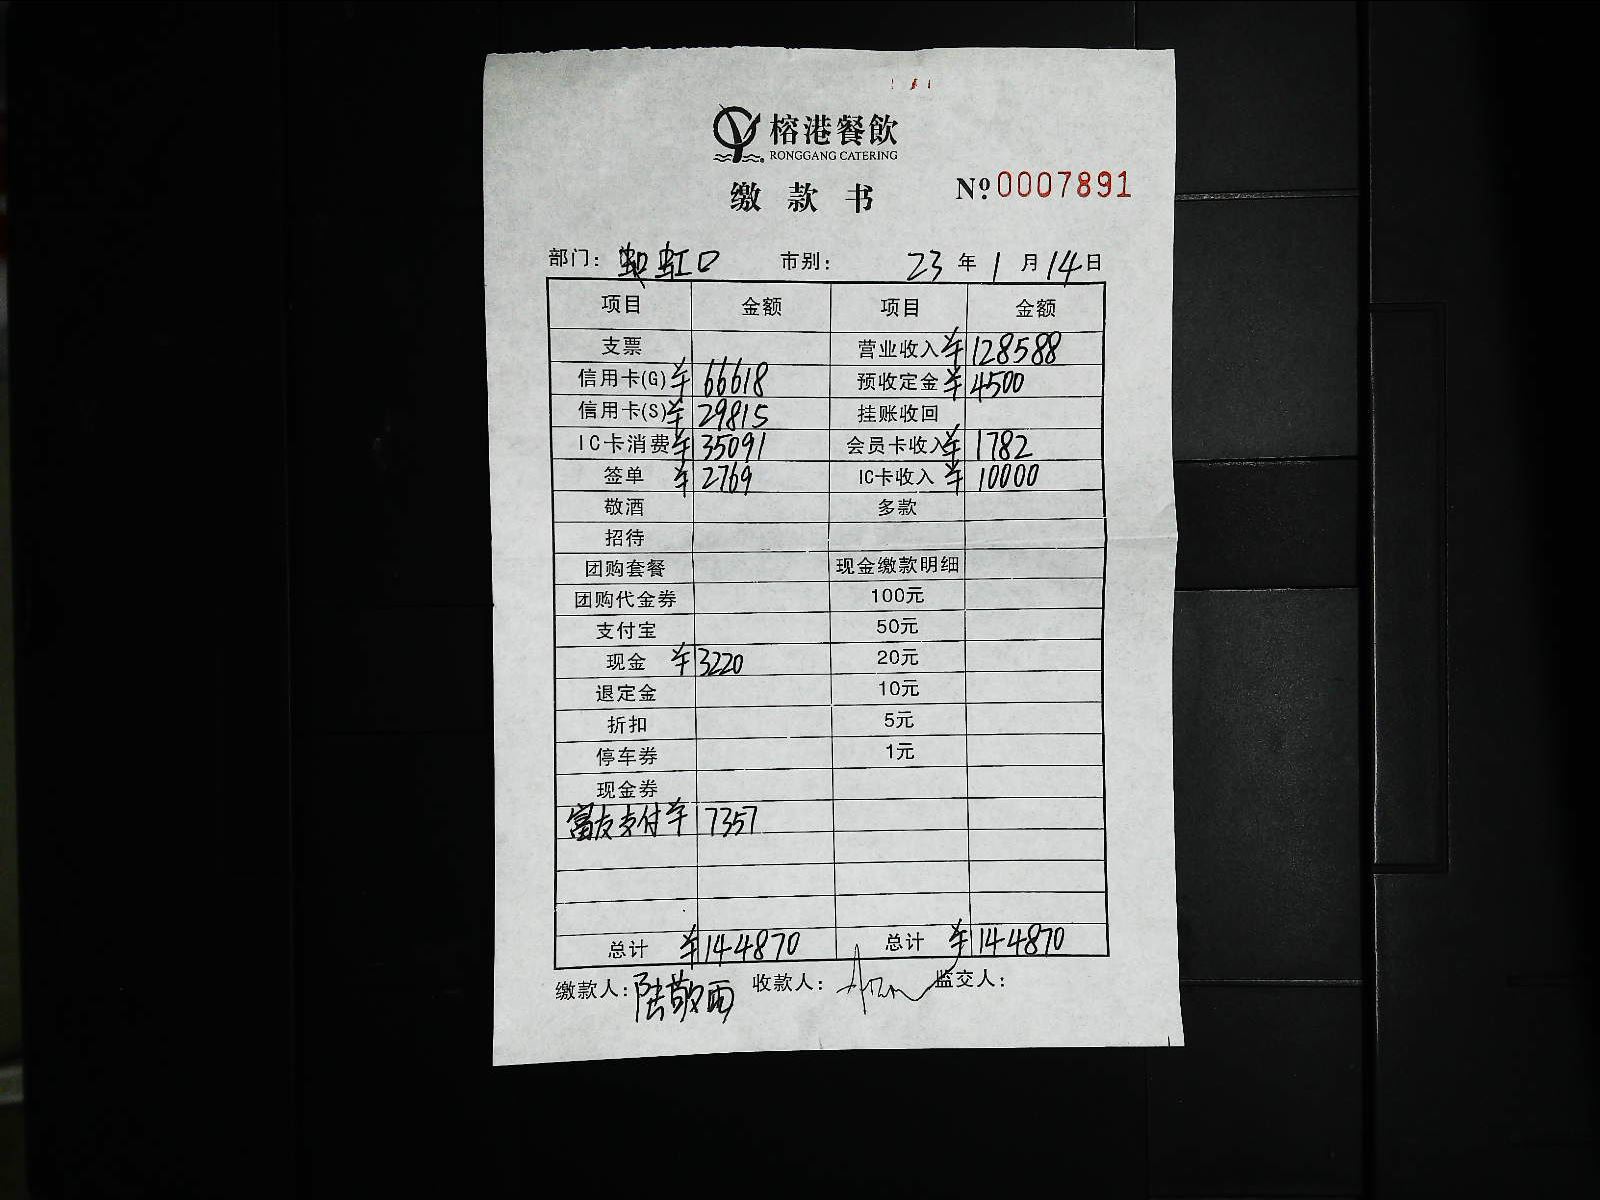 榕港餐飲
RONGGANG CATERING
缴款书 Nº.0007891
部门：虹口 市别： 23年1月14日
项目 金额 项目 金额
支票 营业收入 ¥128588
信用卡(G) ¥66618 预收定金 ¥4500
信用卡(S) ¥29815 挂账收回
IC卡消费 ¥35091 会员卡收入 ¥1782
签单 ¥2769 IC卡收入 ¥10000
敬酒 多款
招待
团购套餐 现金缴款明细
团购代金券 100元
支付宝 50元
现金 ¥3220 20元
退定金 10元
折扣 5元
停车券 1元
现金券
富友支付 ¥7357
总计 ¥144870 总计 ¥144870
缴款人：陆敬西 收款人： 监交人：